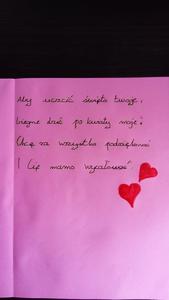 Aby uczcić święto twoje,
biegnę dziś po kwiaty moje!
Chcę za wszystko podziękować
I Cię mamo wycałować.